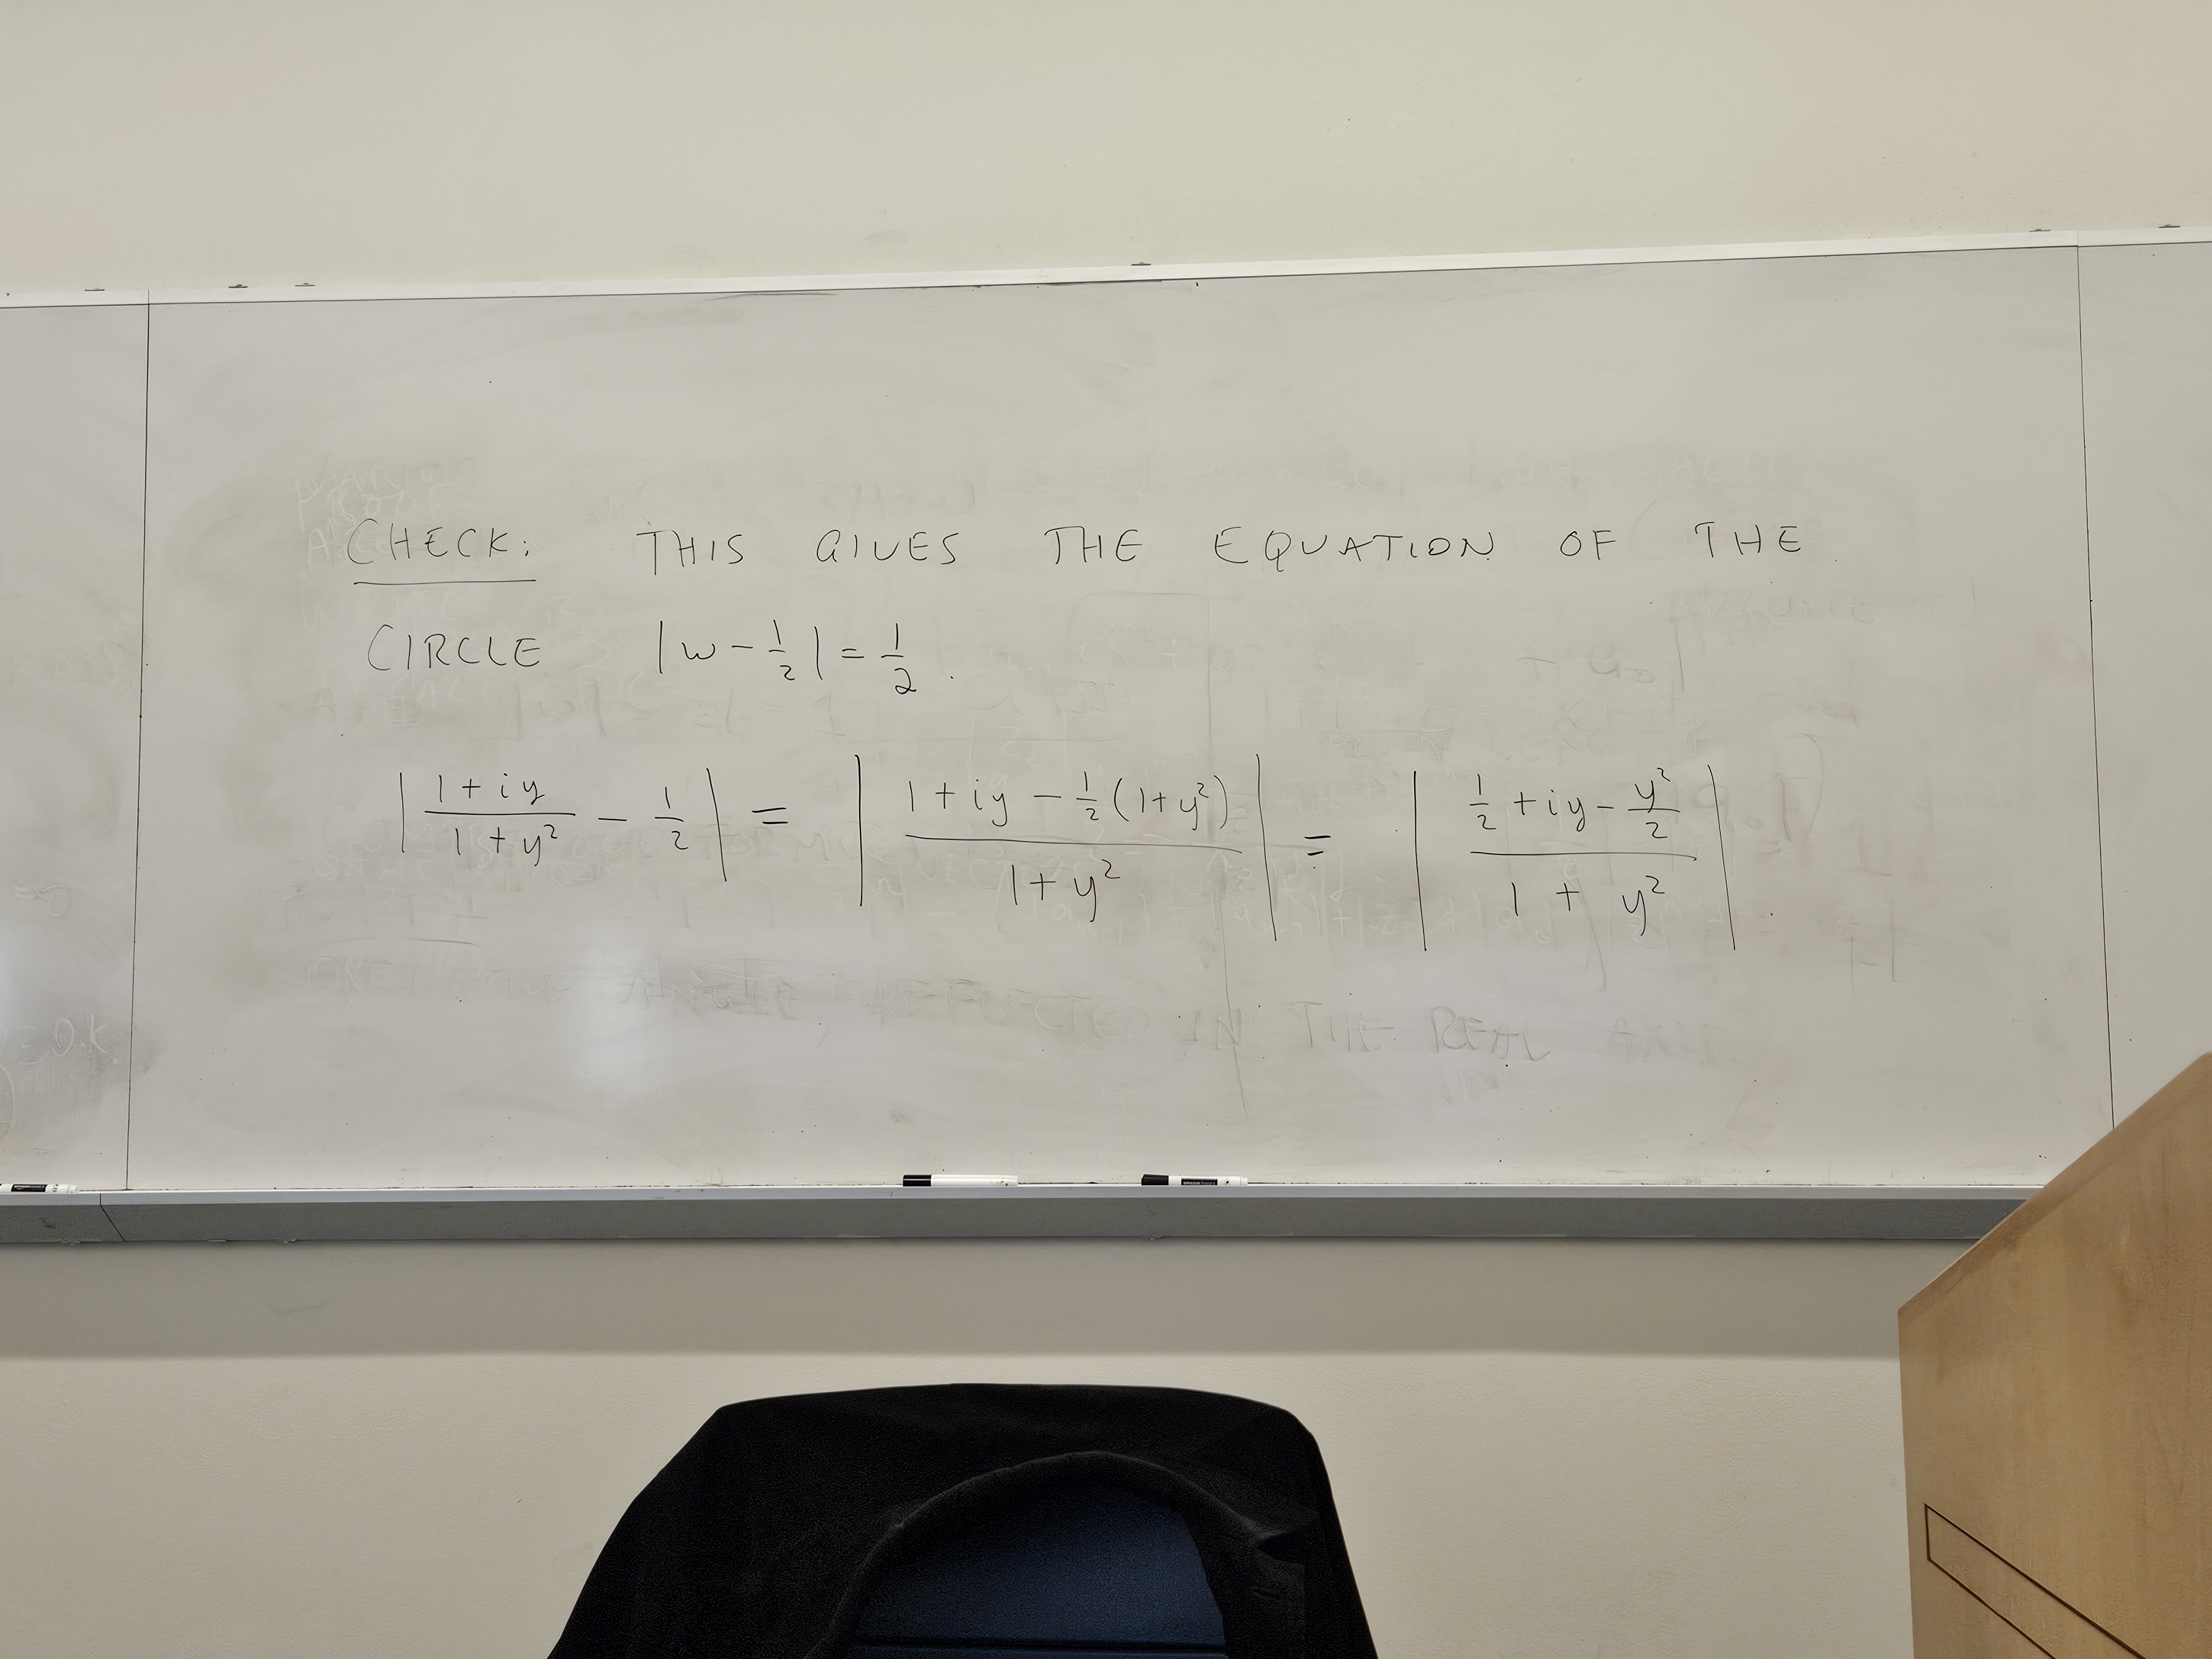 CHECK: THIS GIVES THE EQUATION OF THE
CIRCLE |w - 1/2| = 1/2.
|(1+iy)/(1+y²) - 1/2| = |(1+iy - 1/2(1+y²))/(1+y²)| = |(1/2 + iy - y²/2)/(1+y²)|.
IN THE REAL AXIS
O.K.